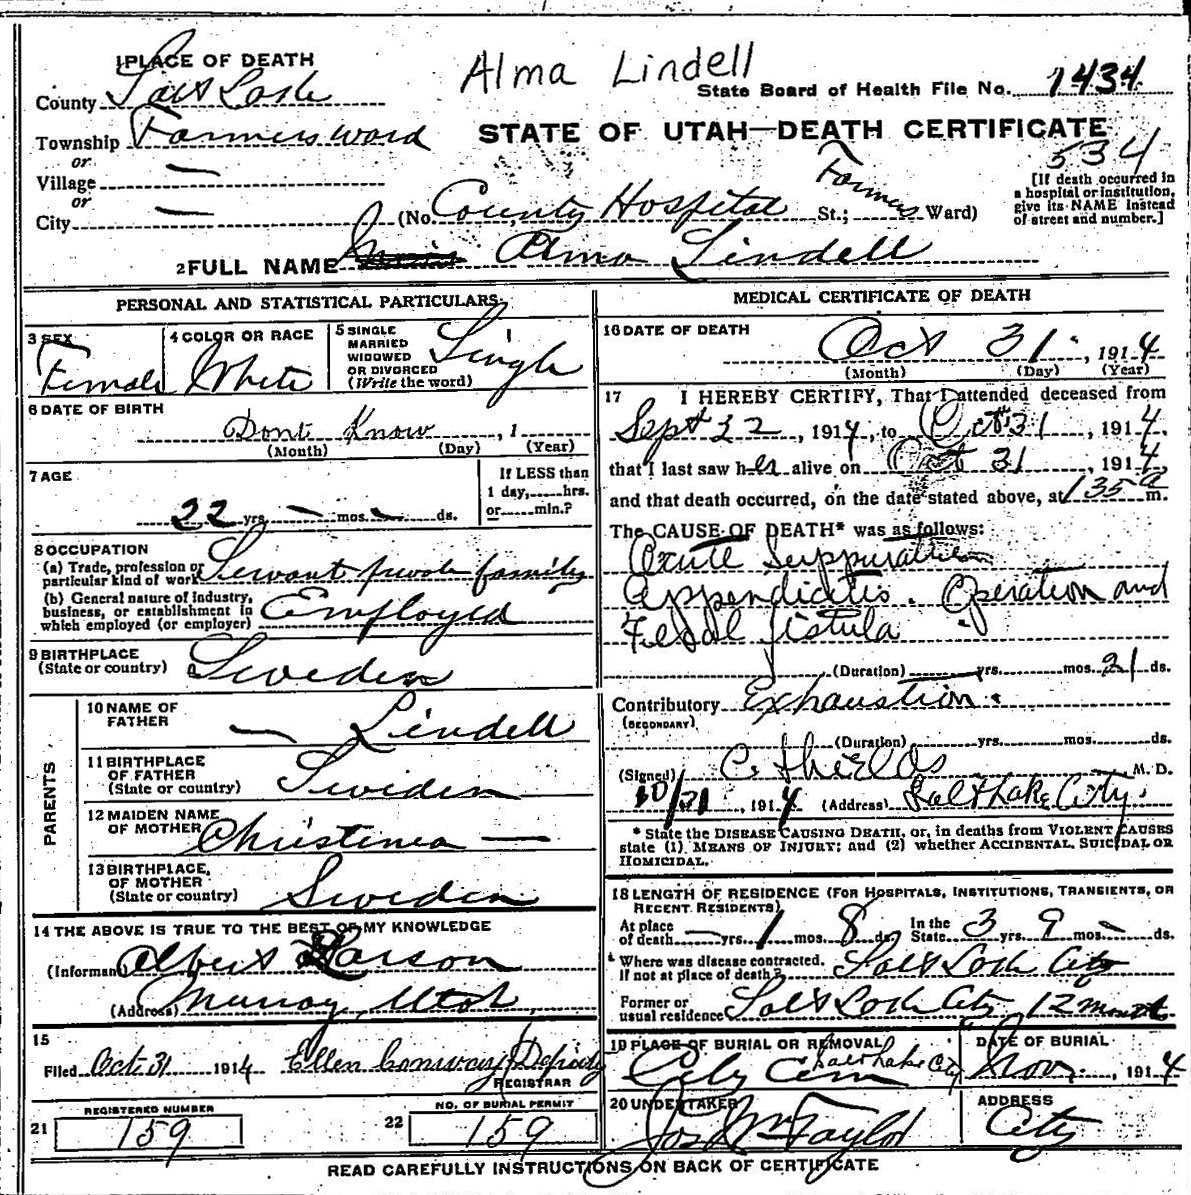 Alma Lindell
1 PLACE OF DEATH
County Salt Lake
State Board of Health File No. 1434
Township Farmers ward
STATE OF UTAH—DEATH CERTIFICATE
or
534
Village —
or
City —
(No. County Hospital St.; Farmers Ward)
[If death occurred in
a hospital or institution,
give its NAME instead
of street and number.]
2 FULL NAME Alma Lindell
PERSONAL AND STATISTICAL PARTICULARS
3 SEX
Female
4 COLOR OR RACE
White
5 SINGLE
MARRIED
WIDOWED
OR DIVORCED
(Write the word)
Single
6 DATE OF BIRTH
Dont Know , 1
(Month) (Day) (Year)
7 AGE
22 yrs. — mos. — ds.
If LESS than
1 day,......hrs.
or......min.?
8 OCCUPATION
(a) Trade, profession or
particular kind of work Servant private family
(b) General nature of industry,
business, or establishment in
which employed (or employer) Employed
9 BIRTHPLACE
(State or country) Sweden
PARENTS
10 NAME OF
FATHER — Lindell
11 BIRTHPLACE
OF FATHER
(State or country) Sweden
12 MAIDEN NAME
OF MOTHER Christinea —
13 BIRTHPLACE,
OF MOTHER
(State or country) Sweden
14 THE ABOVE IS TRUE TO THE BEST OF MY KNOWLEDGE
(Informant) Albert Larson
(Address) Murray, Utah
15
Filed Oct. 31 1914 Ellen Conway Deputy
REGISTRAR
REGISTERED NUMBER
21 159
NO. OF BURIAL PERMIT
22 159
MEDICAL CERTIFICATE OF DEATH
16 DATE OF DEATH
Oct 31 , 1914
(Month) (Day) (Year)
17 I HEREBY CERTIFY, That I attended deceased from
Sept 22 , 1914, to Oct 31 , 1914,
that I last saw her alive on Oct 31 , 1914,
and that death occurred, on the date stated above, at 135 a m.
The CAUSE OF DEATH* was as follows:
Acute Suppurative
Appendicitis. Operation and
Fecal fistula
(Duration) yrs. mos. 21 ds.
Contributory Exhaustion.
(SECONDARY)
(Duration) yrs. mos. ds.
(Signed) C. Shields M. D.
10/31, 1914 (Address) Salt Lake City.
* State the DISEASE CAUSING DEATH, or, in deaths from VIOLENT CAUSES
state (1) MEANS OF INJURY; and (2) whether ACCIDENTAL, SUICIDAL OR
HOMICIDAL.
18 LENGTH OF RESIDENCE (FOR HOSPITALS, INSTITUTIONS, TRANSIENTS, OR
RECENT RESIDENTS)
At place
of death — yrs. 1 mos. 8 ds.
In the
State 3 yrs. 9 mos. — ds.
Where was disease contracted,
if not at place of death? Salt Lake City
Former or
usual residence Salt Lake City 12 month
19 PLACE OF BURIAL OR REMOVAL
City Cem Salt Lake City
DATE OF BURIAL
Nov. , 1914
20 UNDERTAKER
Jos Wm Taylor
ADDRESS
City
READ CAREFULLY INSTRUCTIONS ON BACK OF CERTIFICATE